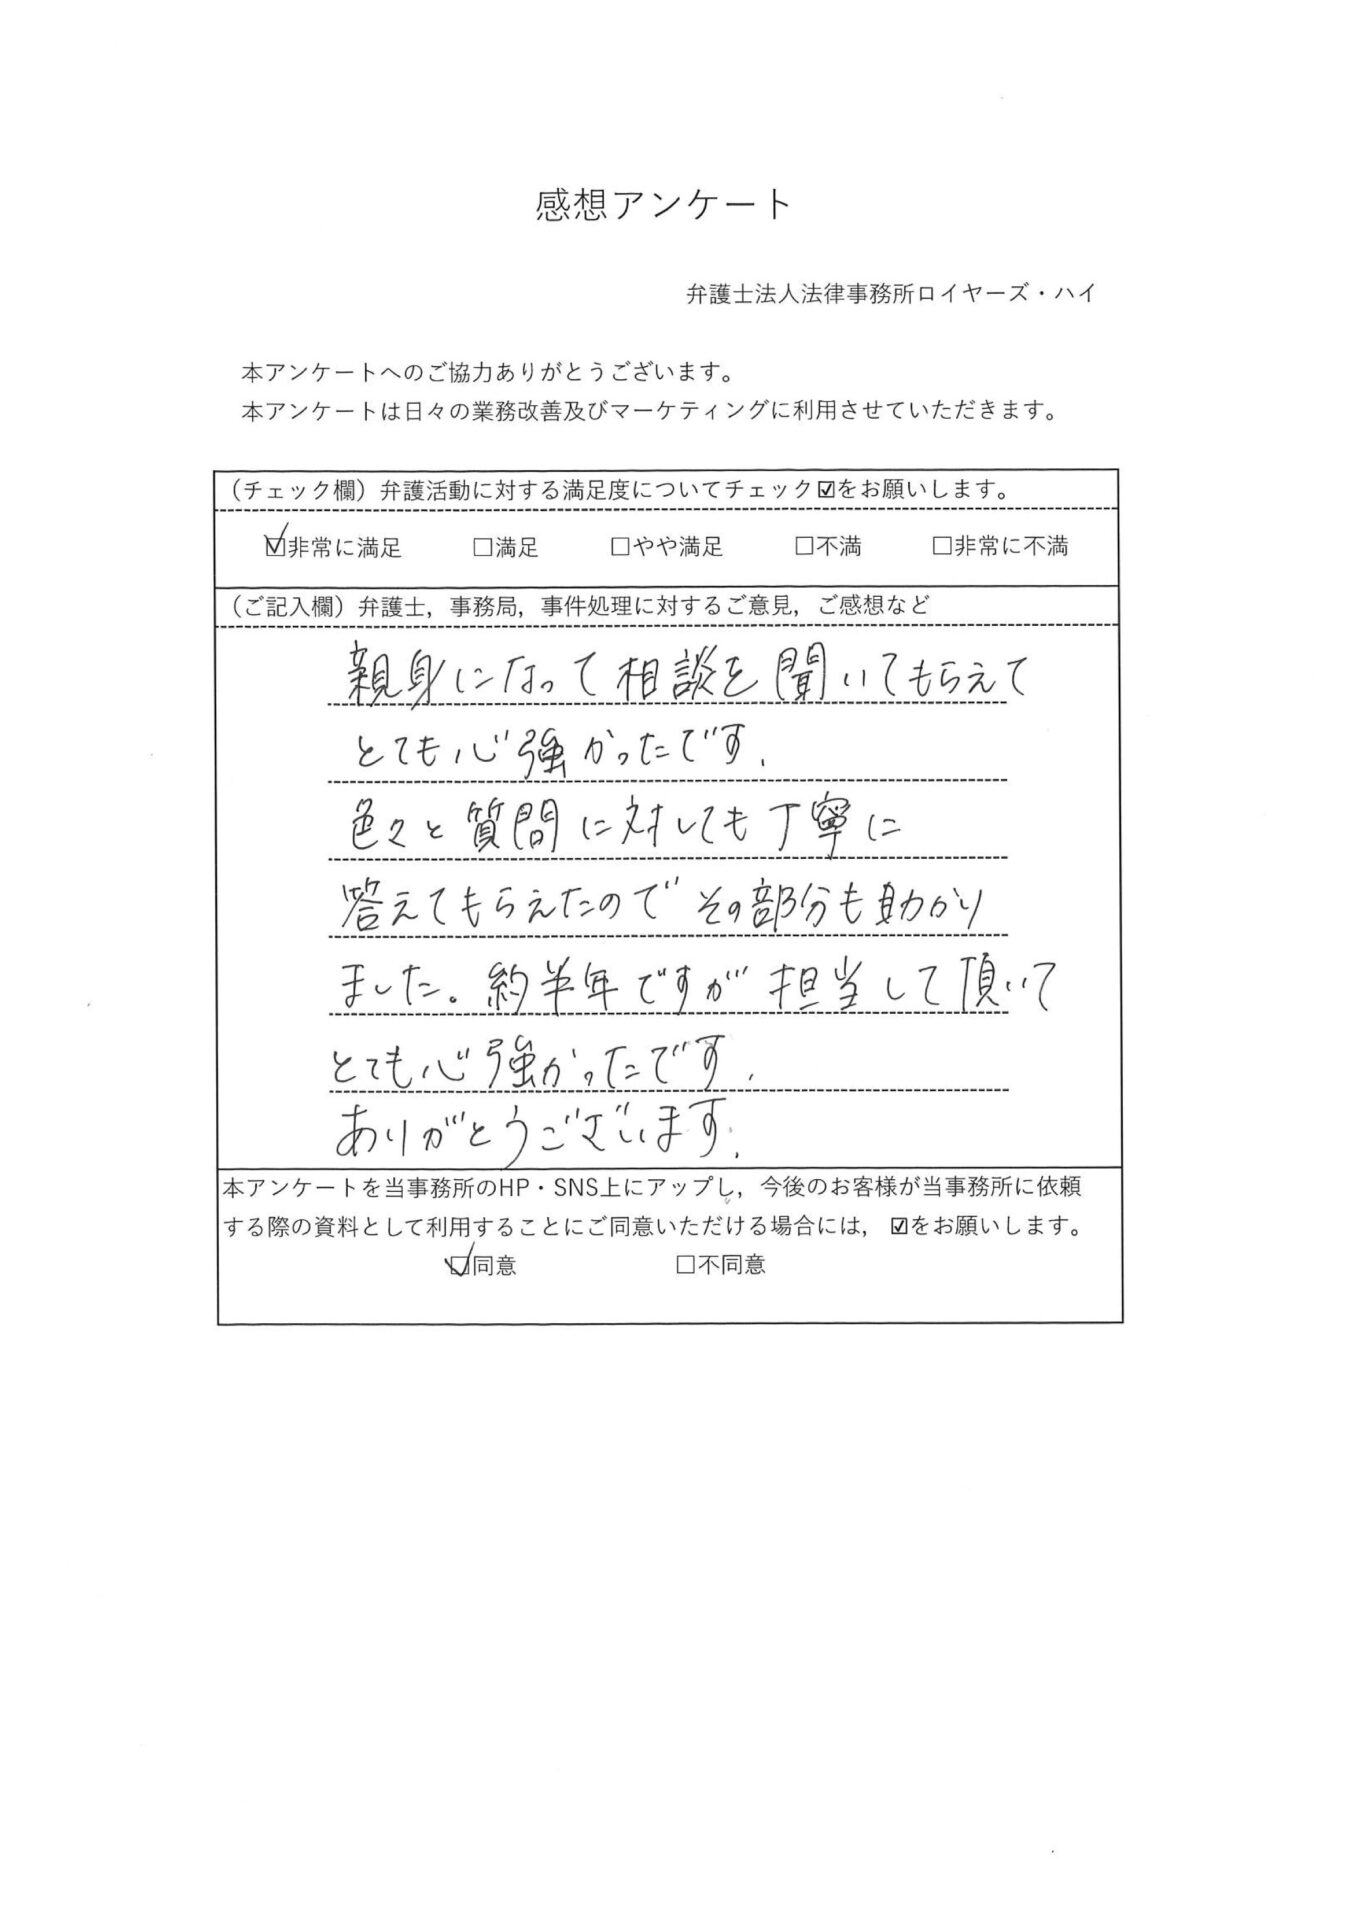 感想アンケート
弁護士法人法律事務所ロイヤーズ・ハイ
本アンケートへのご協力ありがとうございます。
本アンケートは日々の業務改善及びマーケティングに利用させていただきます。
（チェック欄）弁護活動に対する満足度についてチェック☑をお願いします。
☑非常に満足 □満足 □やや満足 □不満 □非常に不満
（ご記入欄）弁護士，事務局，事件処理に対するご意見，ご感想など
親身になって相談を聞いてもらえて
とても心強かったです.
色々と質問に対しても丁寧に
答えてもらえたのでその部分も助かり
ました。約半年ですが担当して頂いて
とても心強かったです.
ありがとうございます.
本アンケートを当事務所のHP・SNS上にアップし，今後のお客様が当事務所に依頼
する際の資料として利用することにご同意いただける場合には，☑をお願いします。
☑同意 □不同意